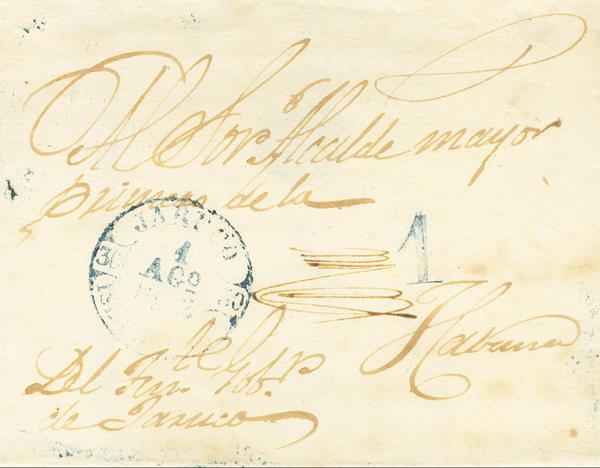 Al Sor. Alcalde mayor
primero de la
JARUCO
1
AGO
1
Habana
Del Ten.te Gob.r
de Jaruco